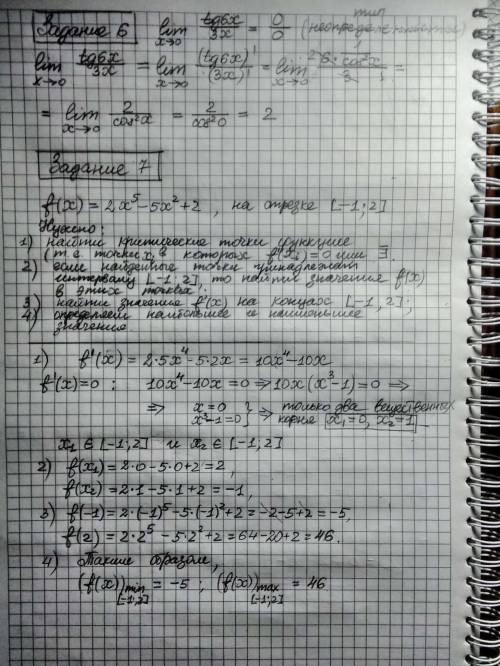 Задание 6 lim x→0 tg6x/3x = 0/0 (тип неопределенности)
lim x→0 tg6x/3x = lim x→0 (tg6x)'/(3x)' = lim x→0
= lim x→0 2/cos²x = 2/cos²0 = 2
Задание 7
f(x) = 2x⁵-5x²+2, на отрезке [-1;2]
Нужно:
1) найти критические точки функции
(т.е. точки x, в которых f'(x)=0 или ∄.
2) если найденные точки принадлежат
интервалу [-1;2], то найти значения f(x)
в этих точках;
3) найти значение f(x) на концах [-1;2];
4) определяем наибольшее и наименьшее
значения.
1) f'(x) = 2·5x⁴-5·2x = 10x⁴-10x
f'(x)=0 : 10x⁴-10x=0 ⇒ 10x(x³-1)=0 ⇒
⇒ x=0 x³-1=0} ⇒ только два вещественных
корня x₁=0, x₂=1
x₁ ∈ [-1;2] и x₂ ∈ [-1;2]
2) f(x₁) = 2·0-5·0+2=2,
f(x₂) = 2·1-5·1+2=-1,
3) f(-1) = 2·(-1)⁵-5·(-1)²+2=-2-5+2=-5,
f(2) = 2·2⁵-5·2²+2=64-20+2=46.
4) Таким образом,
(f(x))min [-1;2] = -5 ; (f(x))max [-1;2] = 46